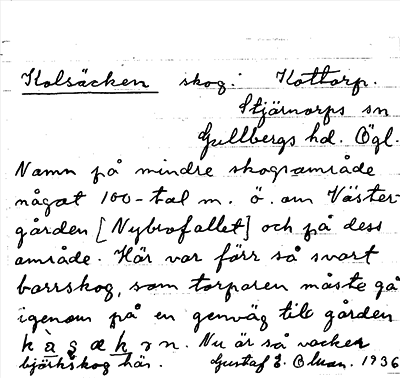 Kolsäcken skog. Kottorp.
Stjärnorps sn
Gullbergs hd. Ögl.
Namn på mindre skogsområde
något 100-tal m. ö. om Väster-
gården [Nybrofallet] och på dess
område. Här var förr så svart
barrskog, som torparen måste gå
igenom på en genväg till gården
Nu är så vacker
björkskog här. Gustaf E. Olsson. 1936